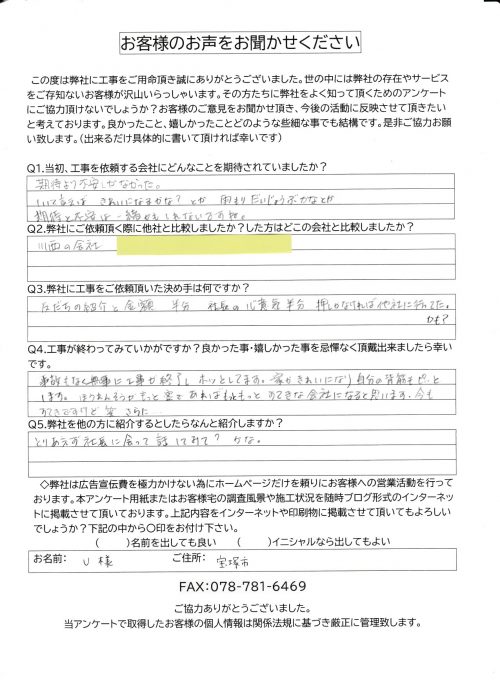 お客様のお声をお聞かせください
この度は弊社に工事をご用命頂き誠にありがとうございました。世の中には弊社の存在やサービス
をご存知ないお客様が沢山いらっしゃいます。その方たちに弊社をよく知って頂くためのアンケート
にご協力頂けないでしょうか？お客様のご意見をお聞かせ頂き、今後の活動に反映させて頂きたい
と考えております。良かったこと、嬉しかったことどのような些細な事でも結構です。是非ご協力お願
い致します。（出来るだけ具体的に書いて頂ければ幸いです）
Q1.当初、工事を依頼する会社にどんなことを期待されていましたか？
期待より不安しかなかった。
いって言えば きれいになるかな？とか 雨もりだいじょうぶかなとか
期待と不安は一緒かもしれないですね。
Q2.弊社にご依頼頂く際に他社と比較しましたか？した方はどこの会社と比較しましたか？
川西の会社
Q3.弊社に工事をご依頼頂いた決め手は何ですか？
友だちの紹介と金額 半分 社長の心意気半分 押しがなければ他社に行ってた。
かも？
Q4.工事が終わってみていかがですか？良かった事・嬉しかった事を忌憚なく頂戴出来ましたら幸い
です。
事故もなく無事に工事が終了し ホッとしてます。家がきれいになり自分の背筋もピッと
します。ほうれんそうがもっと密であればもっともっとすてきな会社になると思います。今も
すてきですけど 笑 さらに…
Q5.弊社を他の方に紹介するとしたらなんと紹介しますか？
とりあえず社長に会って話してみて？かな。
◇弊社は広告宣伝費を極力かけない為にホームページだけを頼りにお客様への営業活動を行って
おります。本アンケート用紙またはお客様宅の調査風景や施工状況を随時ブログ形式のインターネッ
トに掲載させて頂いております。上記内容をインターネットや印刷物に掲載させて頂いてもよろしい
でしょうか？下記の中から〇印をお付け下さい。
（　　）名前を出しても良い　（　　）イニシャルなら出してもよい
お名前： U 様 ご住所： 宝塚市
FAX:078-781-6469
ご協力ありがとうございました。
当アンケートで取得したお客様の個人情報は関係法規に基づき厳正に管理致します。